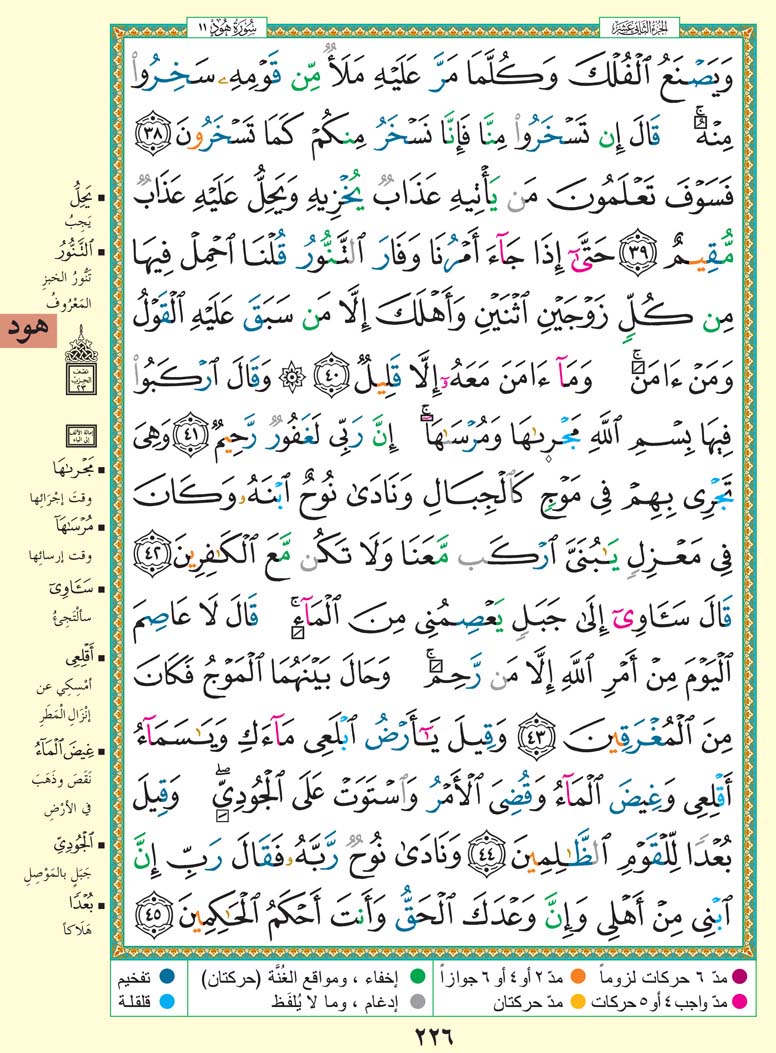 سُورَةُ هُودٍ ١١
الجُزءُ الثَّانِي عَشَرَ
وَيَصْنَعُ ٱلْفُلْكَ وَكُلَّمَا مَرَّ عَلَيْهِ مَلَأٌ مِّن قَوْمِهِۦ سَخِرُوا۟
مِنْهُ ۚ قَالَ إِن تَسْخَرُوا۟ مِنَّا فَإِنَّا نَسْخَرُ مِنكُمْ كَمَا تَسْخَرُونَ ٣٨
فَسَوْفَ تَعْلَمُونَ مَن يَأْتِيهِ عَذَابٌ يُخْزِيهِ وَيَحِلُّ عَلَيْهِ عَذَابٌ
مُّقِيمٌ ٣٩ حَتَّىٰٓ إِذَا جَآءَ أَمْرُنَا وَفَارَ ٱلتَّنُّورُ قُلْنَا ٱحْمِلْ فِيهَا
مِن كُلٍّ زَوْجَيْنِ ٱثْنَيْنِ وَأَهْلَكَ إِلَّا مَن سَبَقَ عَلَيْهِ ٱلْقَوْلُ
وَمَنْ ءَامَنَ ۚ وَمَآ ءَامَنَ مَعَهُۥٓ إِلَّا قَلِيلٌ ٤٠ ۞ وَقَالَ ٱرْكَبُوا۟
فِيهَا بِسْمِ ٱللَّهِ مَجْر۪ىٰهَا وَمُرْسَىٰهَآ ۚ إِنَّ رَبِّى لَغَفُورٌ رَّحِيمٌ ٤١ وَهِىَ
تَجْرِى بِهِمْ فِى مَوْجٍ كَٱلْجِبَالِ وَنَادَىٰ نُوحٌ ٱبْنَهُۥ وَكَانَ
فِى مَعْزِلٍ يَـٰبُنَىَّ ٱرْكَب مَّعَنَا وَلَا تَكُن مَّعَ ٱلْكَـٰفِرِينَ ٤٢
قَالَ سَـَٔاوِىٓ إِلَىٰ جَبَلٍ يَعْصِمُنِى مِنَ ٱلْمَآءِ ۚ قَالَ لَا عَاصِمَ
ٱلْيَوْمَ مِنْ أَمْرِ ٱللَّهِ إِلَّا مَن رَّحِمَ ۚ وَحَالَ بَيْنَهُمَا ٱلْمَوْجُ فَكَانَ
مِنَ ٱلْمُغْرَقِينَ ٤٣ وَقِيلَ يَـٰٓأَرْضُ ٱبْلَعِى مَآءَكِ وَيَـٰسَمَآءُ
أَقْلِعِى وَغِيضَ ٱلْمَآءُ وَقُضِىَ ٱلْأَمْرُ وَٱسْتَوَتْ عَلَى ٱلْجُودِىِّ ۖ وَقِيلَ
بُعْدًا لِّلْقَوْمِ ٱلظَّـٰلِمِينَ ٤٤ وَنَادَىٰ نُوحٌ رَّبَّهُۥ فَقَالَ رَبِّ إِنَّ
ٱبْنِى مِنْ أَهْلِى وَإِنَّ وَعْدَكَ ٱلْحَقُّ وَأَنتَ أَحْكَمُ ٱلْحَـٰكِمِينَ ٤٥
يَحِلُّ
يَجِبُ
ٱلتَّنُّورُ
تَنُّورُ الخبزِ
المَعْرُوفُ
هود
نصف
الحزب
٢٣
إمالة الألف
إلى الياء
مَجْر۪ىٰهَا
وقتَ إجْرَائِها
مُرْسَىٰهَآ
وقت إرسائِها
سَـَٔاوِىٓ
سألْتَجِئُ
أَقْلِعِى
أمْسِكِي عن
إنْزَالِ المَطَرِ
غِيضَ ٱلْمَآءُ
نَقَصَ وذَهَبَ
في الأرْضِ
ٱلْجُودِىِّ
جَبَلٍ بالمَوْصِلِ
بُعْدًا
هَلَاكاً
مدّ ٦ حركات لزوماً
مدّ ٢ أو ٤ أو ٦ جوازاً
إخفاء ، ومواقع الغُنَّة (حركتان)
تفخيم
مدّ واجب ٤ أو ٥ حركات
مدّ حركتان
إدغام ، وما لا يُلفَظ
قلقلة
٢٢٦